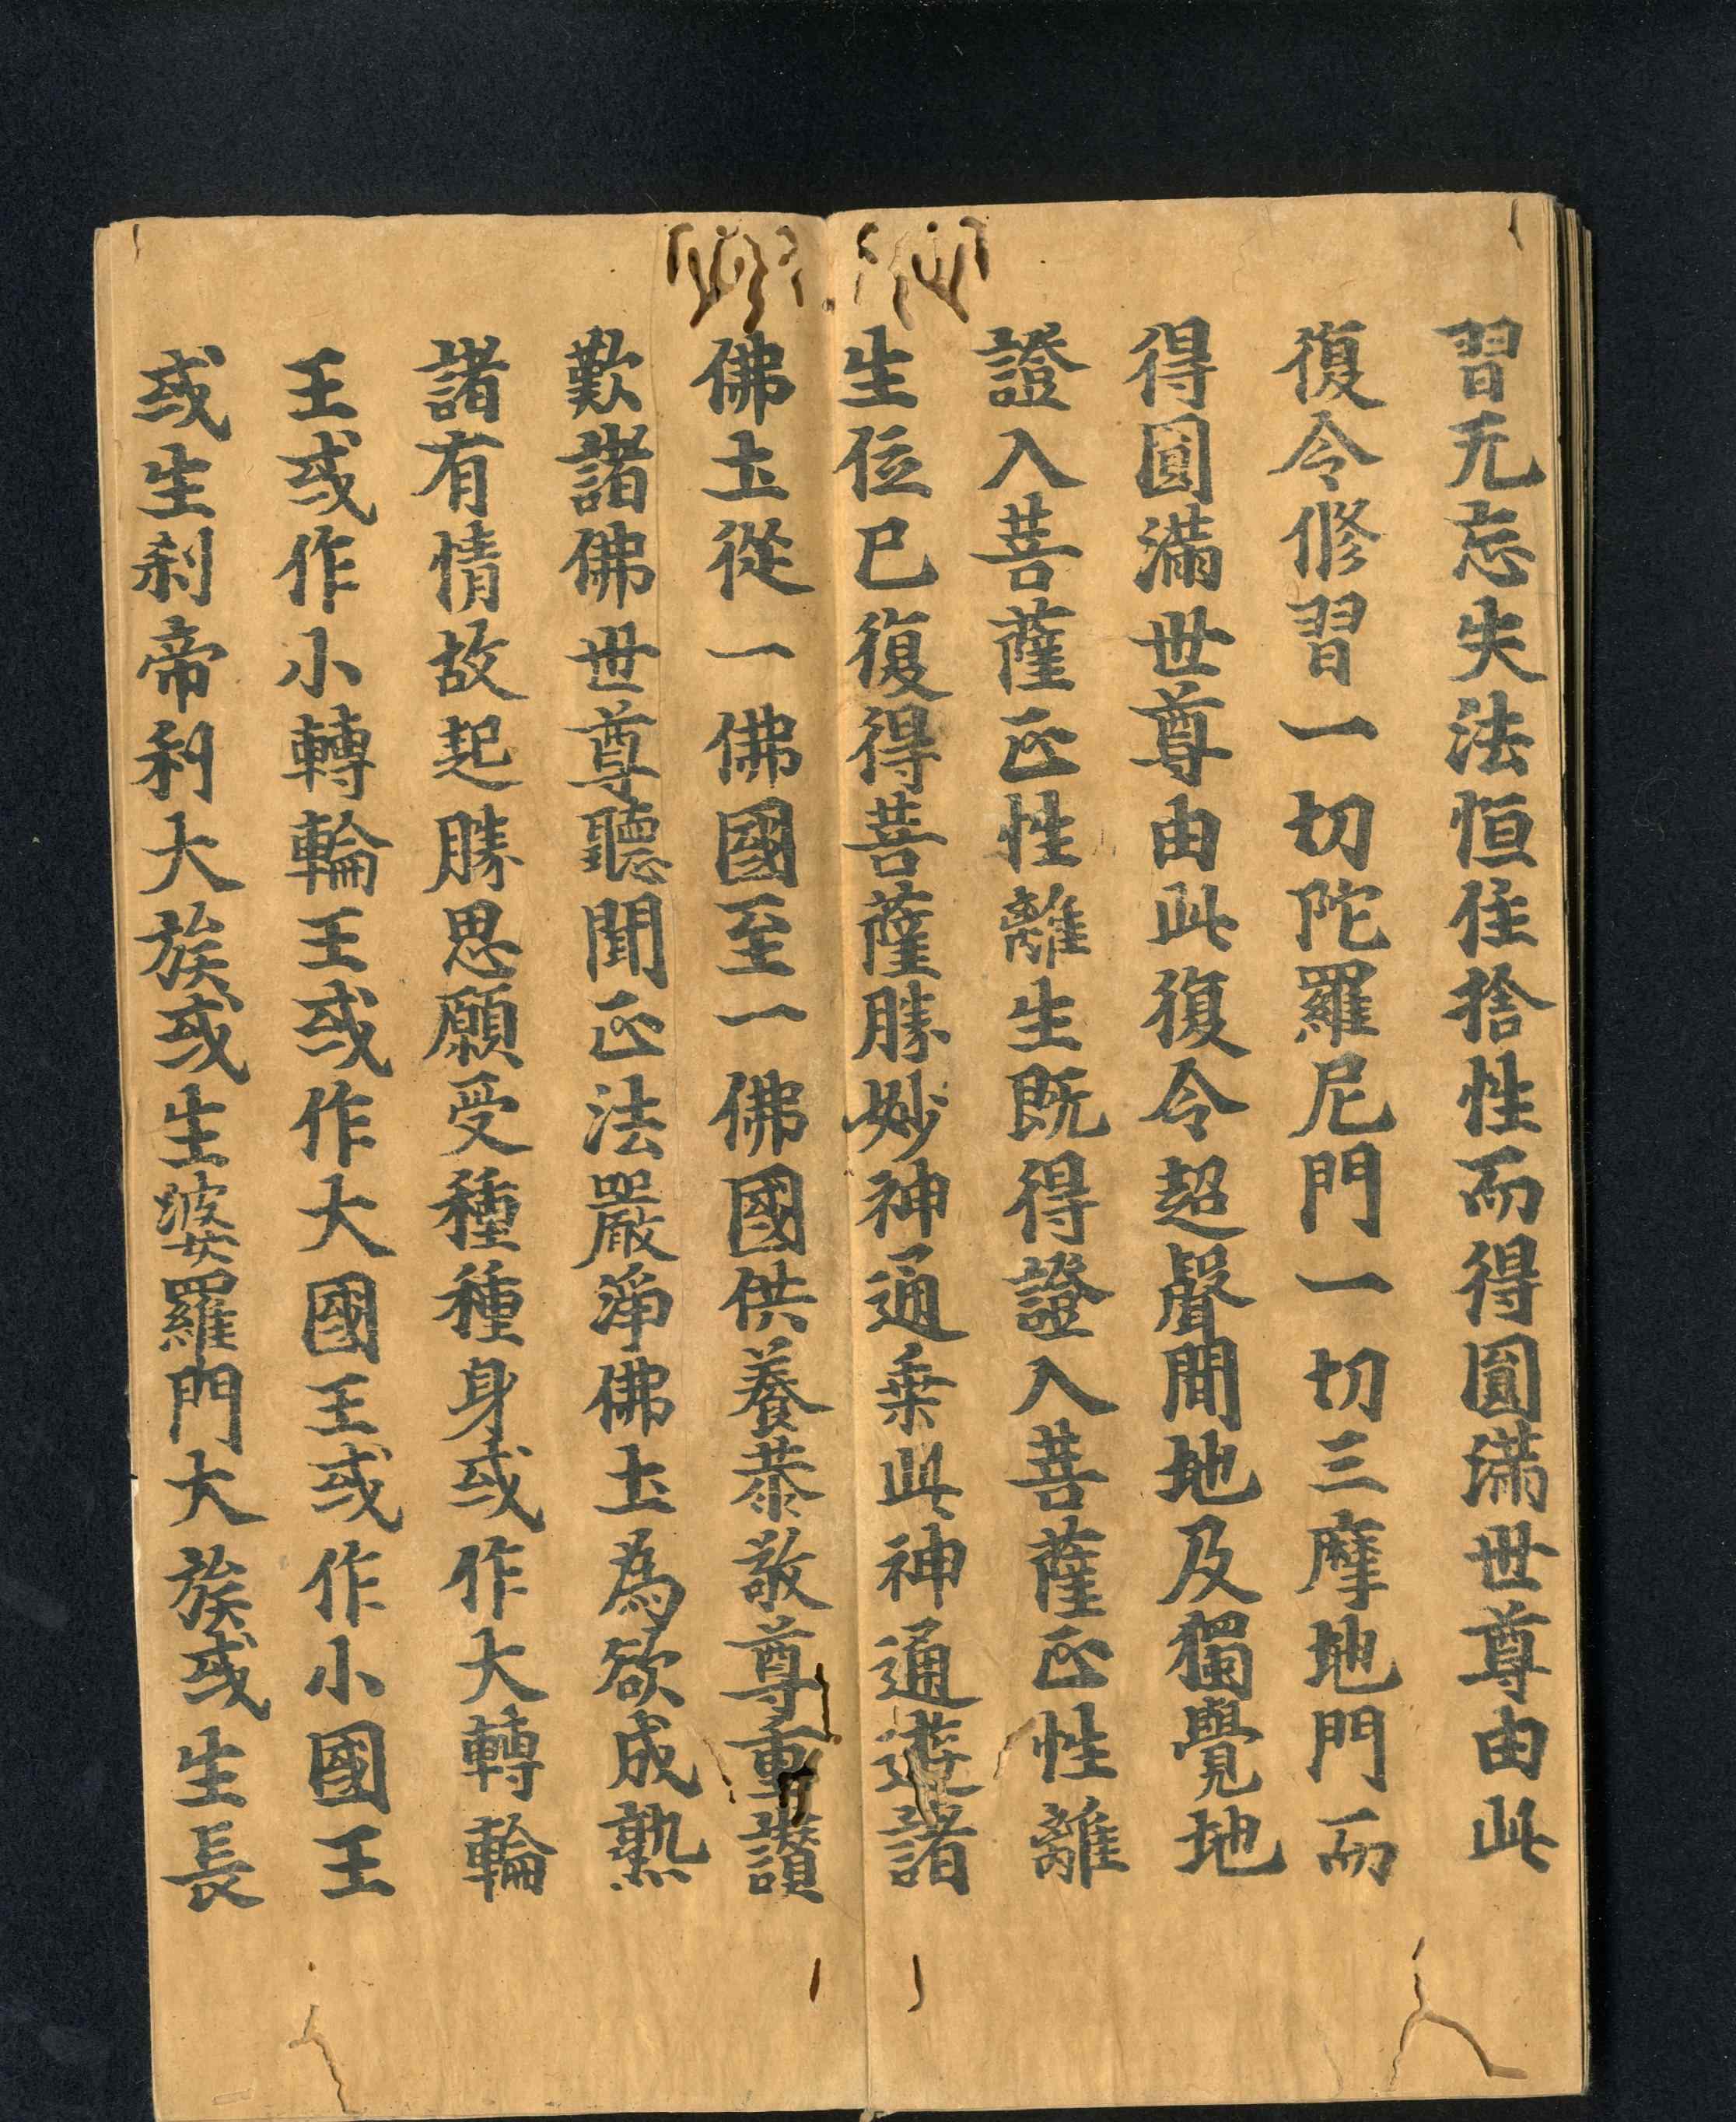 習无忘失法恒住捨性而得圓滿世尊由此
復令修習一切陀羅尼門一切三摩地門而
得圓滿世尊由此復令超聲聞地及獨覺地
證入菩薩正性離生既得證入菩薩正性離
生位已復得菩薩勝妙神通乗此神通遊諸
佛土從一佛國至一佛國供養恭敬尊重讃
歎諸佛世尊聽聞正法嚴淨佛土為欲成熟
諸有情故起勝思願受種種身或作大轉輪
王或作小轉輪王或作大國王或作小國王
或生刹帝利大族或生婆羅門大族或生長